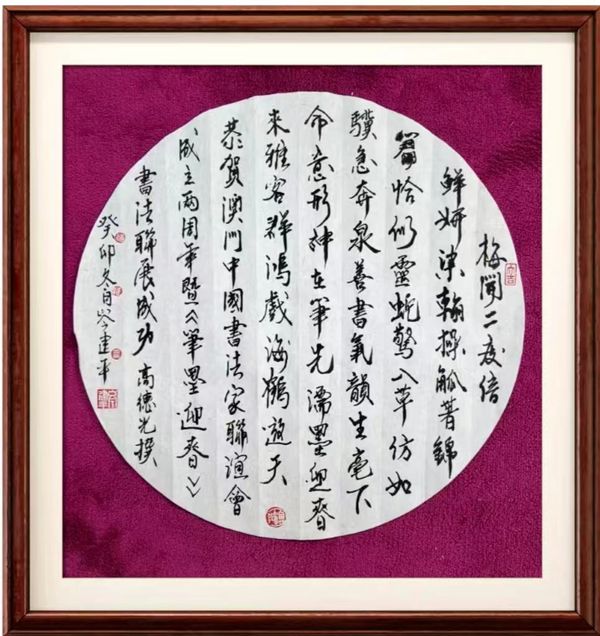 梅開二度倍
鮮妍染翰操觚著錦
恰似靈虵驚入草仿如
驥急奔泉善書氣韻生毫下
命意形神在筆先濡墨迎春
來雅客群鴻戲海鶴遊天
恭賀澳門中國書法家聯誼會
成立兩周年暨《筆墨迎春》
書法聯展成功 高德光撰
癸卯冬 岑建平